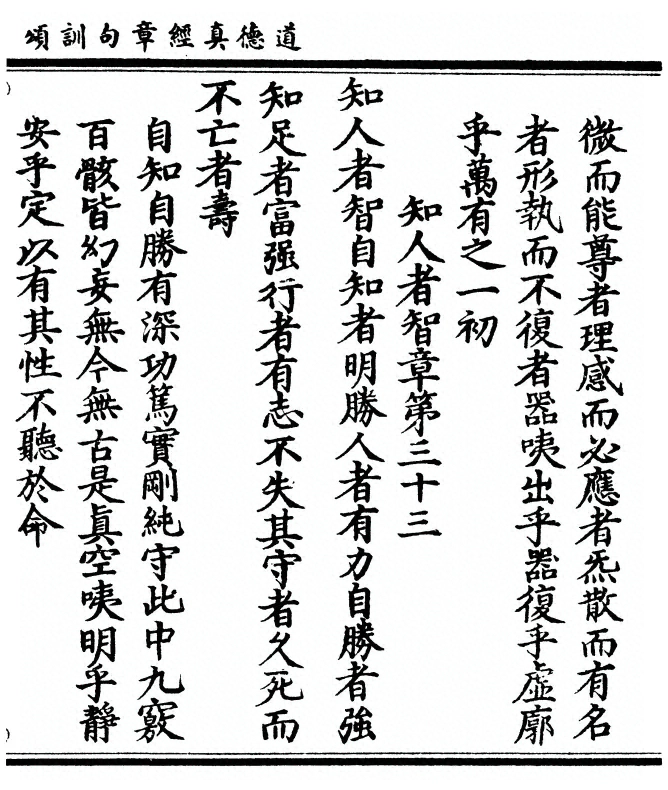 道德真經章句訓頌
微而能尊者理感而必應者炁散而有名
者形執而不復者器咦出乎器復乎虛廓
乎萬有之一初
知人者智章第三十三
知人者智自知者明勝人者有力自勝者強
知足者富强行者有志不失其守者久死而
不亡者壽
自知自勝有深功篤實剛純守此中九竅
百骸皆幻妄無今無古是眞空咦明乎靜
安乎定以有其性不聽於命